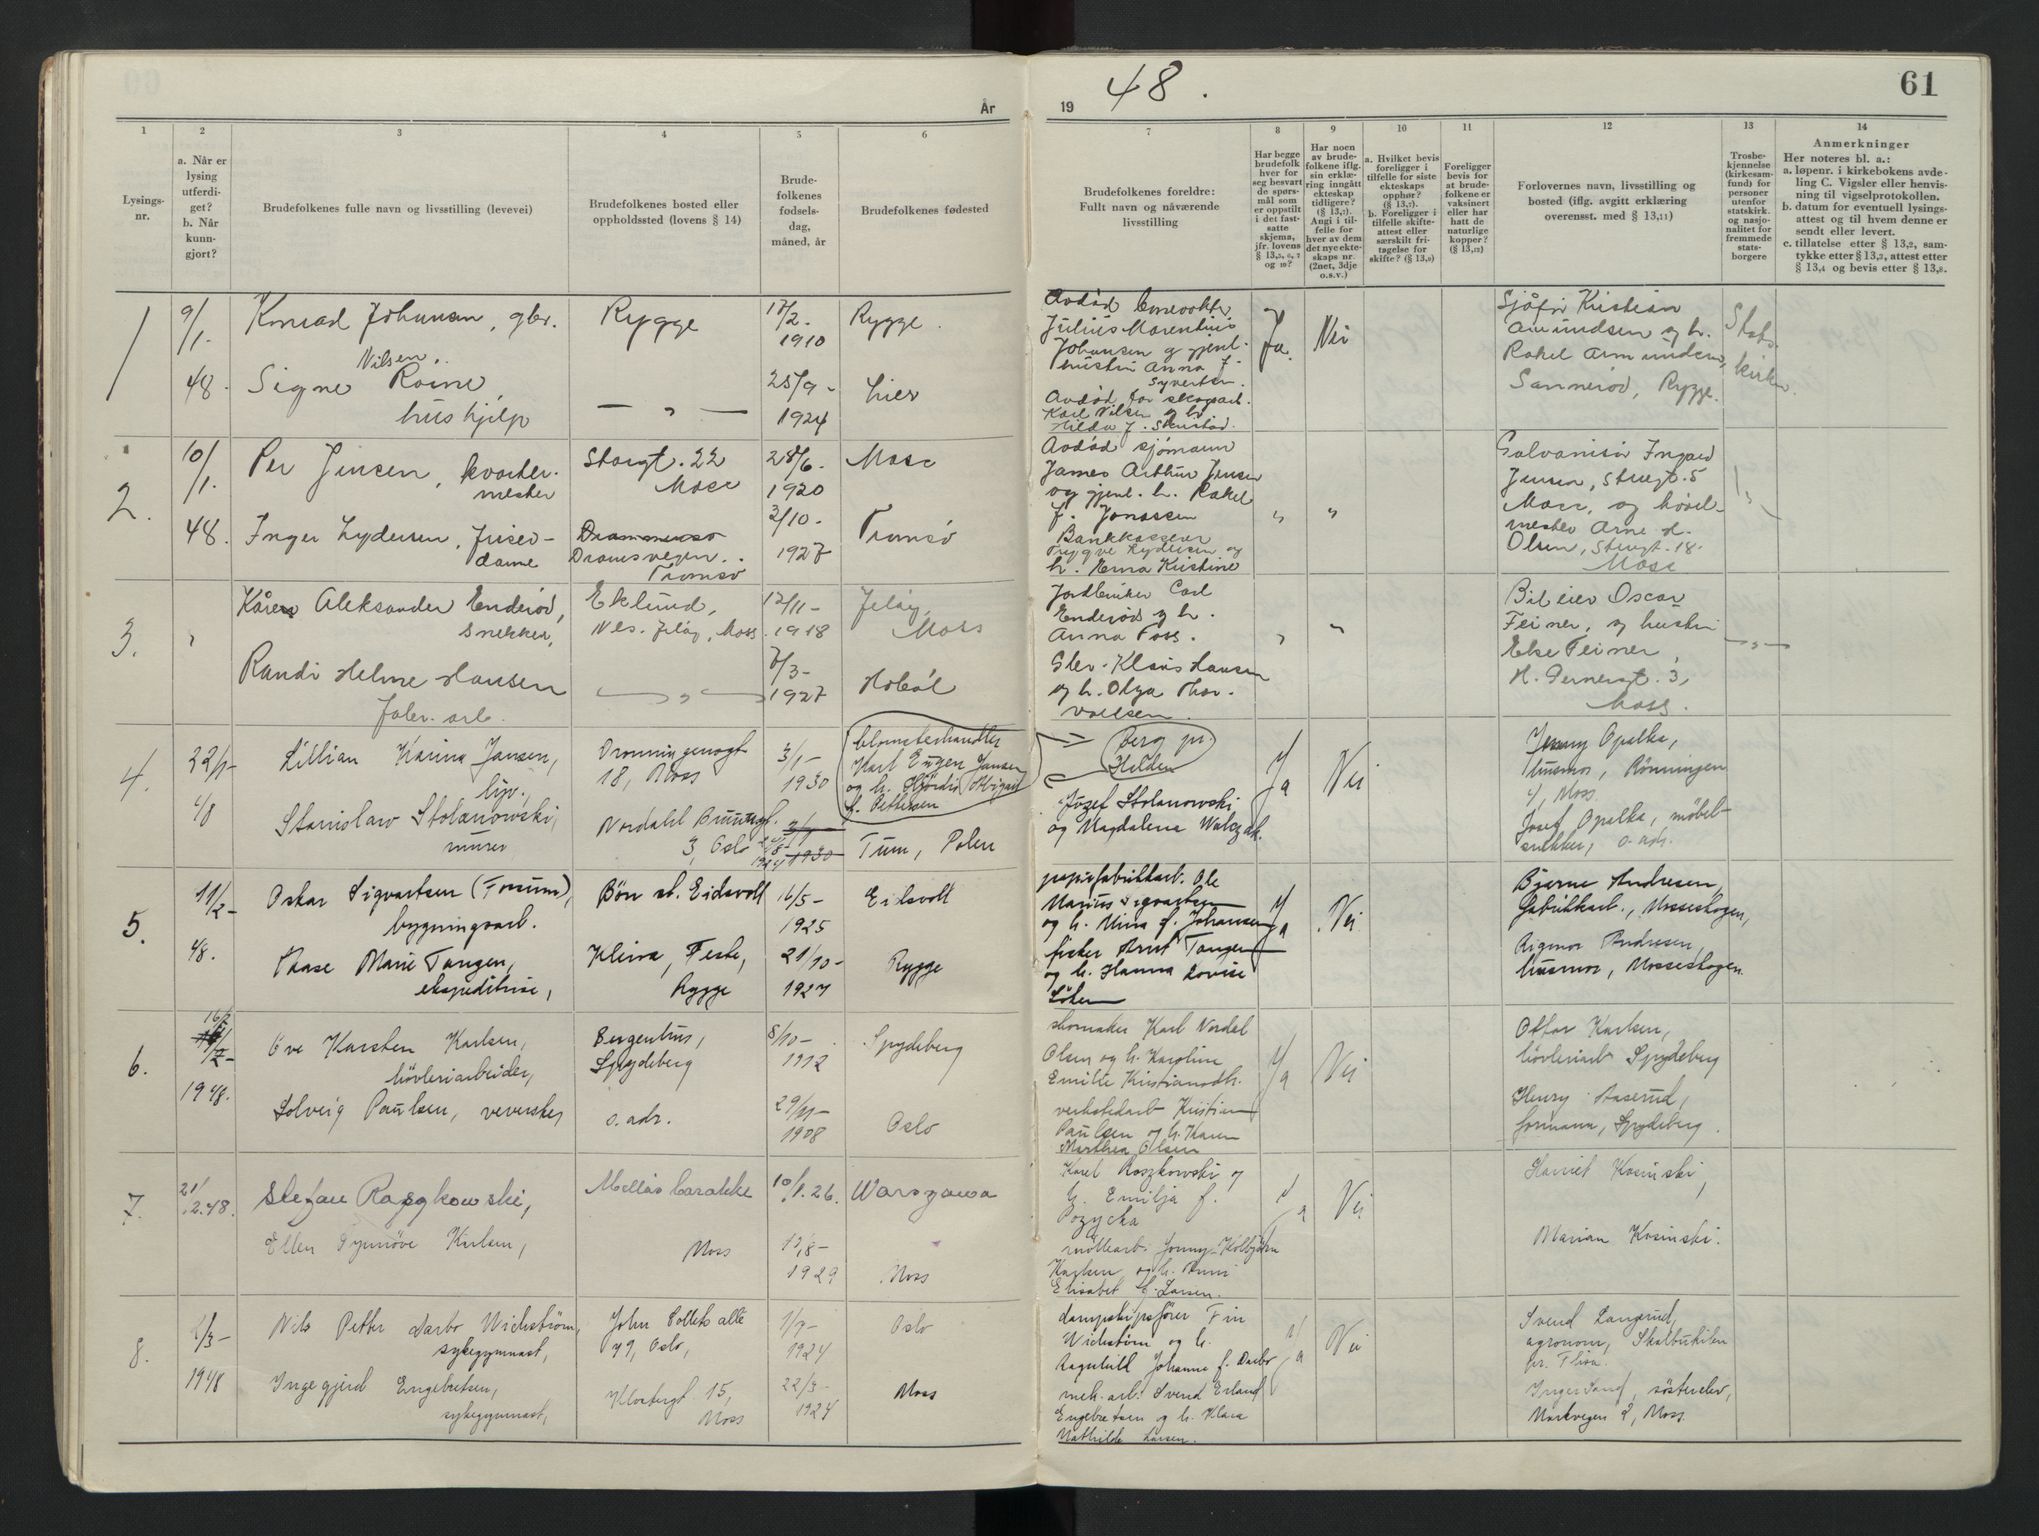 År
19 48.
61
1
2
3
4
5
6
7
8
9
10
11
12
13
14
Lysings-
nr.
a. Når er
lysing
utferdi-
get?
b. Når
kunn-
gjort?
Brudefolkenes fulle navn og livsstilling (levevei)
Brudefolkenes bosted eller
oppholdssted (lovens § 14)
Brude-
folkenes
fødsels-
dag,
måned, år
Brudefolkenes fødested
Brudefolkenes foreldre:
Fullt navn og nåværende
livsstilling
Har begge
brudefolk
hver for
seg besvart
de spørs-
mål som
er oppstilt
i det fast-
satte
skjema,
jfr. lovens
§ 13,5, 6, 7
og 10?
Har noen
av brude-
folkene iflg.
sin erklæ-
ring inngått
ekteskap
tidligere?
(§ 13,7).
Angi i til-
felle for
hver av dem
det nye ekte-
skaps nr.
(2net, 3dje
o.s.v.)
a. Hvilket bevis
foreligger i
tilfelle for siste
ekteskaps
opphør?
(§ 13,7)
b. Foreligger i
tilfelle skifte-
attest eller
særskilt fri-
tagelse for
skifte? (§ 13,9)
Foreligger
bevis for
at brude-
folkene er
vaksinert
eller har
hatt de
naturlige
kopper?
(§ 13,12)
Forlovernes navn, livsstilling og
bosted (iflg. avgitt erklæring
overensst. med § 13,11)
Trosbe-
kjennelse
(kirkesam-
fund) for
personer
utenfor
statskirk.
og nasjo-
nalitet for
fremmede
stats-
borgere
Anmerkninger
Her noteres bl. a.:
a. løpenr. i kirkebokens avde-
ling C. Vigsler eller henvis-
ning til vigselprotokollen.
b. datum for eventuell lysings-
attest og til hvem denne er
sendt eller levert.
c. tillatelse etter § 13,2, sam-
tykke etter § 13,3, attest etter
§ 13,4 og bevis etter § 13,8.
1
9/1.
48.
Konrad Johansen, gbr.
Nilsen.
Signe
hushjelp
Rygge
— " —
17/2.
1910
25/9 -
1924
Rygge.
Lier
Avdød
Julius Marentius
Johansen og gjenl.
hustru Anna f.
Syvertsen.
Avdød
Karl Nilsen og h.
Hilda f.
Ja.
Nei
Sjåfør Kristian
Amundsen og h.
Rakel Amundsen,
Sannerød, Rygge.
Stats-
kirken
2.
10/1.
48.
Per Jensen, kvarter-
mester
Inger Lydersen, frisør-
dame
Storgt. 22
Moss
Dramsvegen.
Tromsø
28/6.
1920
3/10.
1927
Moss
Tromsø
Avdød sjømann
James Arthur Jensen
og gjenl. h. Rakel
f. Jonassen
Bankkasserer
Trygve Lydersen og
h. Erna Kristine
"
"
Galvanisør Ingard
Jensen, Storgt. 5
Moss, og høvel-
mester Arne H.
Olsen, Storgt. 18.
Moss
"
3.
"
Kåre Aleksander Enderød,
Snekker,
Randi Helene Hansen
fabr. arb.
Eklund,
Nes. Jeløy, Moss.
— " —
12/11 -
1918
7/3 -
1927
Jeløy,
Moss
Hobøl
Jordbruker Carl
Enderød og h.
Anna Foss.
Gbr. Klaus Hansen
og h. Olga Thor-
valdsen.
"
"
Bileier Oscar
Feiner, og hustru
Else Feiner,
H. Gernersgt. 3,
Moss.
— " —
4.
22/1-
48
Lillian Karina Jansen,
Stanislaw Stolanowski,
murer
Dronningensgt
18, Moss
Nordahl Brunsgt.
3, Oslo
3/1 -
1930
1924 1930
blomsterhandler
Karl Eugen Jansen
og h. Hjørdis Abigail
f. Pettersen
Tum, Polen
Berg pr
Halden
Józef Stolanowski
og Magdalena Walczak.
Ja
Nei
Jenny Opalka,
husmor, Rönningen
4, Moss.
Josef Opalka, möbel-
snekker, s. adr.
5.
11/2-
48.
Oskar Sigvartsen (Fossum),
bygningsarb.
Aase Marie Tangen,
ekspeditrise,
Bön st. Eidsvoll
Kleiva, Feste,
Rygge
16/5 -
1925
21/10 -
1927
Eidsvoll
Rygge
papirfabrikkarb. Ole
Marius Sigvartsen
og h. Mina f. Johansen
fisker Arnt Tangen
og h. Hanna Lovise
Ja
Nei
Bjarne Andresen,
fabrikkarb., Mosseskogen,
Rigmor Andresen,
husmor, Mosseskogen.
6.
16/2
1948.
Ove Karsten Karlsen,
hövleriarbeider,
Solveig Paulsen, veverske
Spydeberg
s. adr.
8/10 -
1912
1908
Spydeberg
Oslo
skomaker Karl Nordal
Olsen og h. Karoline
Emilie Kristiansdtr.
verkstedarb Kristian
Paulsen og h. Karen
Marthea Olsen
Ja
Nei
Ottar Karlsen,
hövleriarb Spydeberg
Henry Aaserud,
formann, Spydeberg.
7.
21/
.2.48.
Stefan Raszkowski,
Ellen Synnöve Karlsen,
Melløs barakke
Moss
10/1.26.
1929
Warszawa
Moss
Karel Roszkowski og
h. Emilja f.
Pozycka
möllearb. Jonny Kolbjörn
Karlsen og h. Anni
Elisabet f. Larsen.
Ja
Nei
Harriet Kosinski,
Marian Kosinski.
8.
2/3-
1948
Nils Petter Darbo Wickström,
sykegymnast,
Ingegjerd Engebretsen,
sykegymnast,
John Colletts alle
79, Oslo,
Klostergt 15,
Moss
1/7 -
1924
22/3 -
1924
Oslo
Moss
dampskipsförer Finn
Wickström og h.
Ragnhild Johanne f. Darbo
mek. arb. Svend Erland
Engebretsen og h. Klara
Mathilde Larsen.
Ja
Nei
Svend Langerud,
agronom,
pr. Flisa.
Inger Sand, søsterelev,
Markvegen 2, Moss